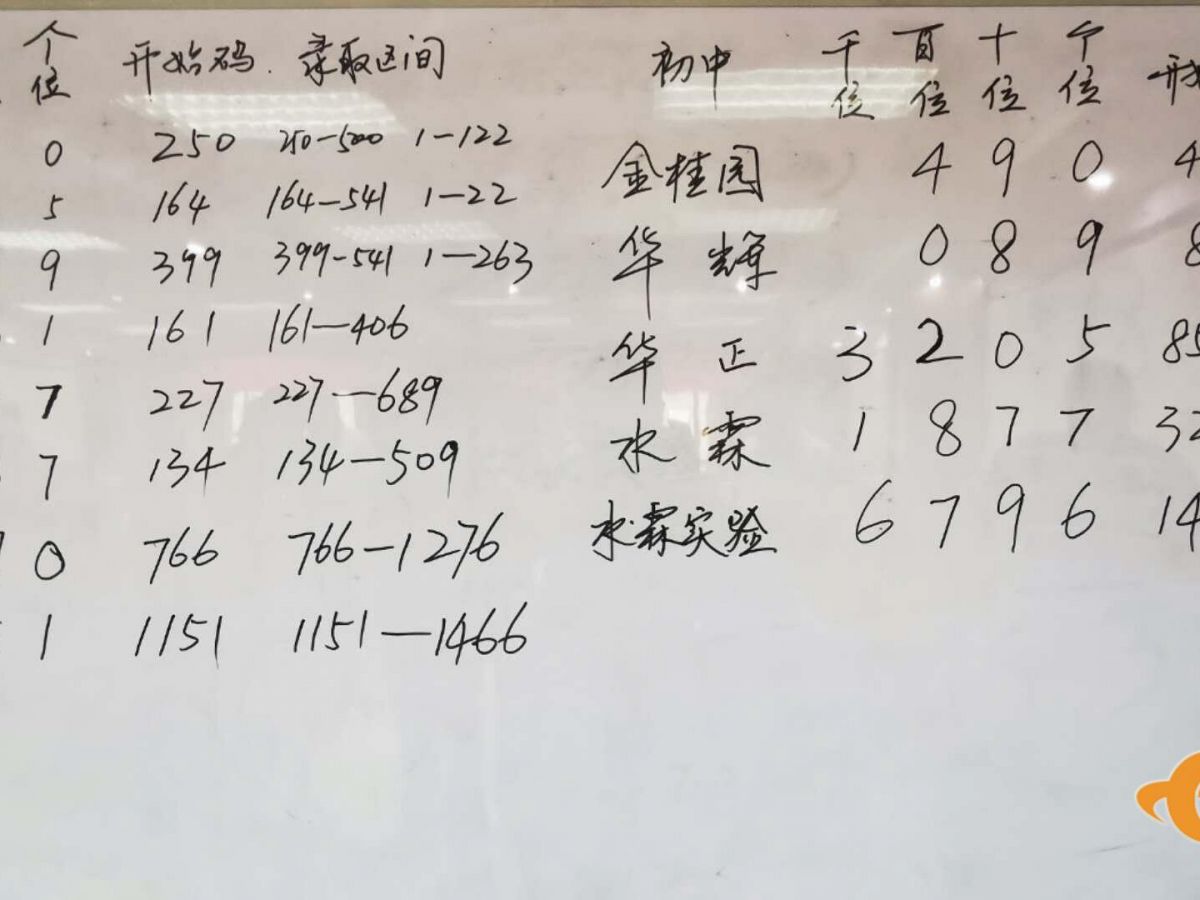 个位 开始码 录取区间 初中 千位 百位 十位 个位 开
0 250 250-500 1-122 金桂园 4 9 0 4
5 164 164-541 1-22 华辉 0 8 9 8
9 399 399-541 1-263 华正 3 2 0 5 85
1 161 161-406 水霖 1 8 7 7 32
7 227 227-689 水霖实验 6 7 9 6 14
7 134 134-509
0 766 766-1276
1 1151 1151-1466